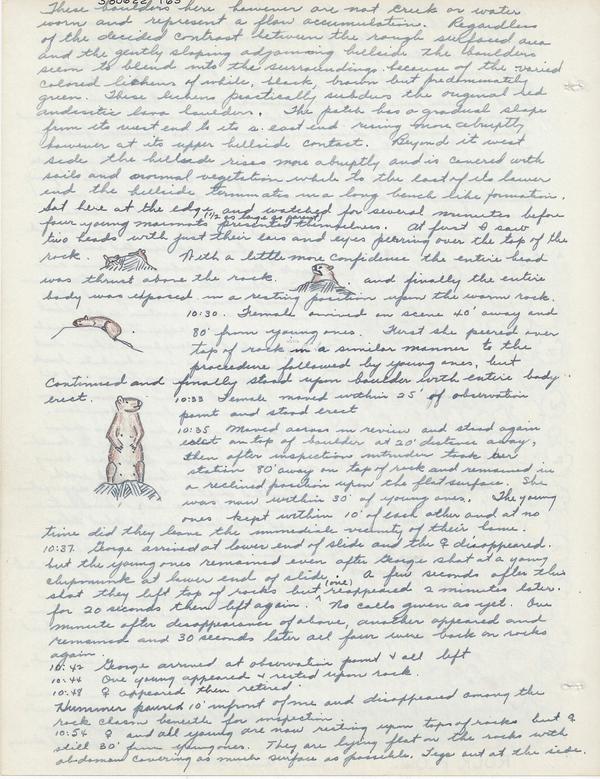 These boulders here however are not creek or water
worn and represent a flow accumulation. Regardless
of the decided contrast between the rough surfaced area
and the gently sloping adjoining hillside the boulders
seem to blend into the surroundings because of the varied
colored lichens of white, black, brown but predominately
green. These lichens practically subdue the original red
andesitic lava boulders. The patch has a gradual slope
from its west end to its s. east end rising more abruptly
however at its upper hillside contact. Beyond it west
side the hillside rises more abruptly and is covered with
soils and normal vegetation while to the east of its lower
end the hillside terminates in a long bench like formation.
Sat here at the edge and watched for several minutes before
(1 1/2 as large as parent)
four young marmots presented themselves. At first I saw
two heads with just their ears and eyes peering over the top of the
rock. With a little more confidence the entire head
was thrust above the rock. and finally the entire
body was exposed in a resting position upon the warm rock.
10:30. Female arrived on scene 40' away and
80' from young ones. First she peered over
top of rock in a similar manner to the
procedure followed by young ones, but
continued and finally stood upon boulder with entire body
erect. 10:33 Female moved within 25' of observation
point and stood erect
10:35 Moved across in review and stood again
erect on top of boulder at 20' distance away,
then after inspection intruder took her
station 80' away on top of rock and remained in
a reclined position upon the flat surface. She
was now within 30' of young ones. The young
ones kept within 10' of each other and at no
time did they leave the immediate vicinity of their home.
10:37. George arrived at lower end of slide and the ♀ disappeared.
but the young ones remained even after George shot at a young
chipmunk at lower end of slide. A few seconds after this
shot they left top of rocks but (one) reappeared 2 minutes later.
for 20 seconds then left again. No calls given as yet. One
minute after disappearance of above, another appeared and
remained and 30 seconds later all four were back on rocks
again.
10:42 George arrived at observation point & all left
10:44 One young appeared & rested upon rock.
10:48 ♀ appeared then retired
Hummer paused 10' infront of me and disappeared among the
rock chasm beneath for inspection.
10:54 ♀ and all young are now resting upon tops of rocks but ♀
still 30' from young ones. They are lying flat on the rocks with
abdomen covering as much surface as possible. Legs out at the side.